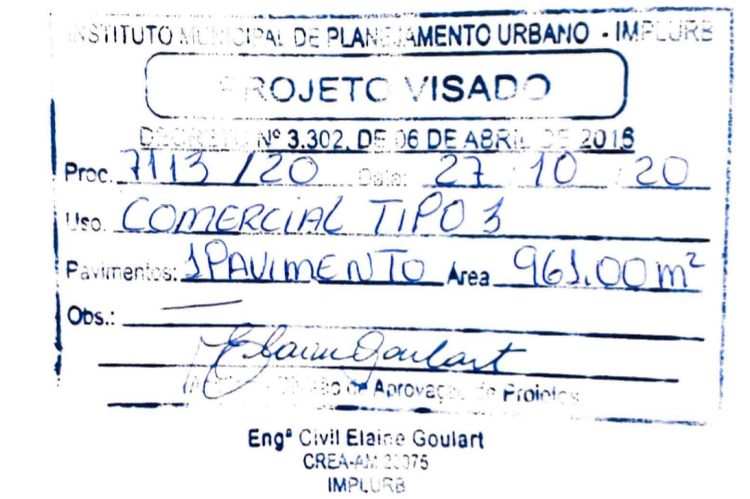 INSTITUTO MUNICIPAL DE PLANEJAMENTO URBANO - IMPLURB
PROJETO VISADO
DECRETO Nº 3.302, DE 06 DE ABRIL DE 2016
Proc. 7113 / 20 Data: 27 10 20
Uso. COMERCIAL TIPO 3
Pavimentos: 1 PAVIMENTO Área 961.00 m²
Obs.: —
Elaine Goulart
de Aprovação de Projetos
Engª Civil Elaine Goulart
CREA-AM
IMPLURB